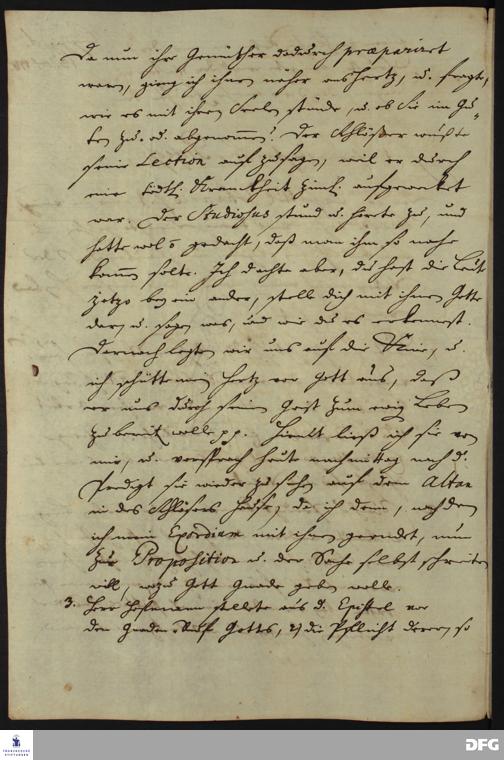 Da nun ihre Gemüther dadurch præpariret
waren, ging ich ihnen näher ans Hertz, u. fragte,
wie es mit ihren Seelen stünde, u. ob sie im Gu-
ten zu- od. abgenommen? Der Schlößer wußte
seine Lection aufzusagen, weil er durch
eine tödtl. Kranckheit ziml. aufgewecket
war. Der Studiosus stund u. hörete zu, und
hatte wol gedacht, daß man ihm so nahe
kommen solte. Ich dachte aber, du hast die Leute
jetzo bey ein ander, stelle dich mit ihnen Gotte
dar, u. sage was, und wie du es erkennest.
Darnach legten wir uns auf die Knie, u.
ich schütte mein Hertz vor Gott aus, daß
er uns durch seinen Geist zum ewig Leben
zubereit wolle pp. Hierauf ließ ich sie von
mir, u. versprach heute nachmittag nach d.
Predigt sie wieder zu sehen auf dem Altan
in des Schlößers Hause, da ich denn, nachdem
ich mein Exordium mit ihnen geendet, nun
zur Proposition u. der Sache selbst schreiten
will, wozu Gott Gnade geben wolle.
3. Herr Hofmann stellete aus d. Epistel vor
den Gnaden-Ruf Gottes, 2) die Pflicht derer, so
FRANCKESCHE STIFTUNGEN
DFG